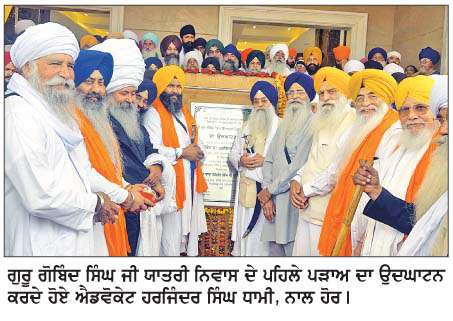 ਗੁਰੂ ਗੋਬਿੰਦ ਸਿੰਘ ਜੀ ਯਾਤਰੀ ਨਿਵਾਸ ਦੇ ਪਹਿਲੇ ਪੜਾਅ ਦਾ ਉਦਘਾਟਨ
ਕਰਦੇ ਹੋਏ ਐਡਵੋਕੇਟ ਹਰਜਿੰਦਰ ਸਿੰਘ ਧਾਮੀ, ਨਾਲ ਹੋਰ।